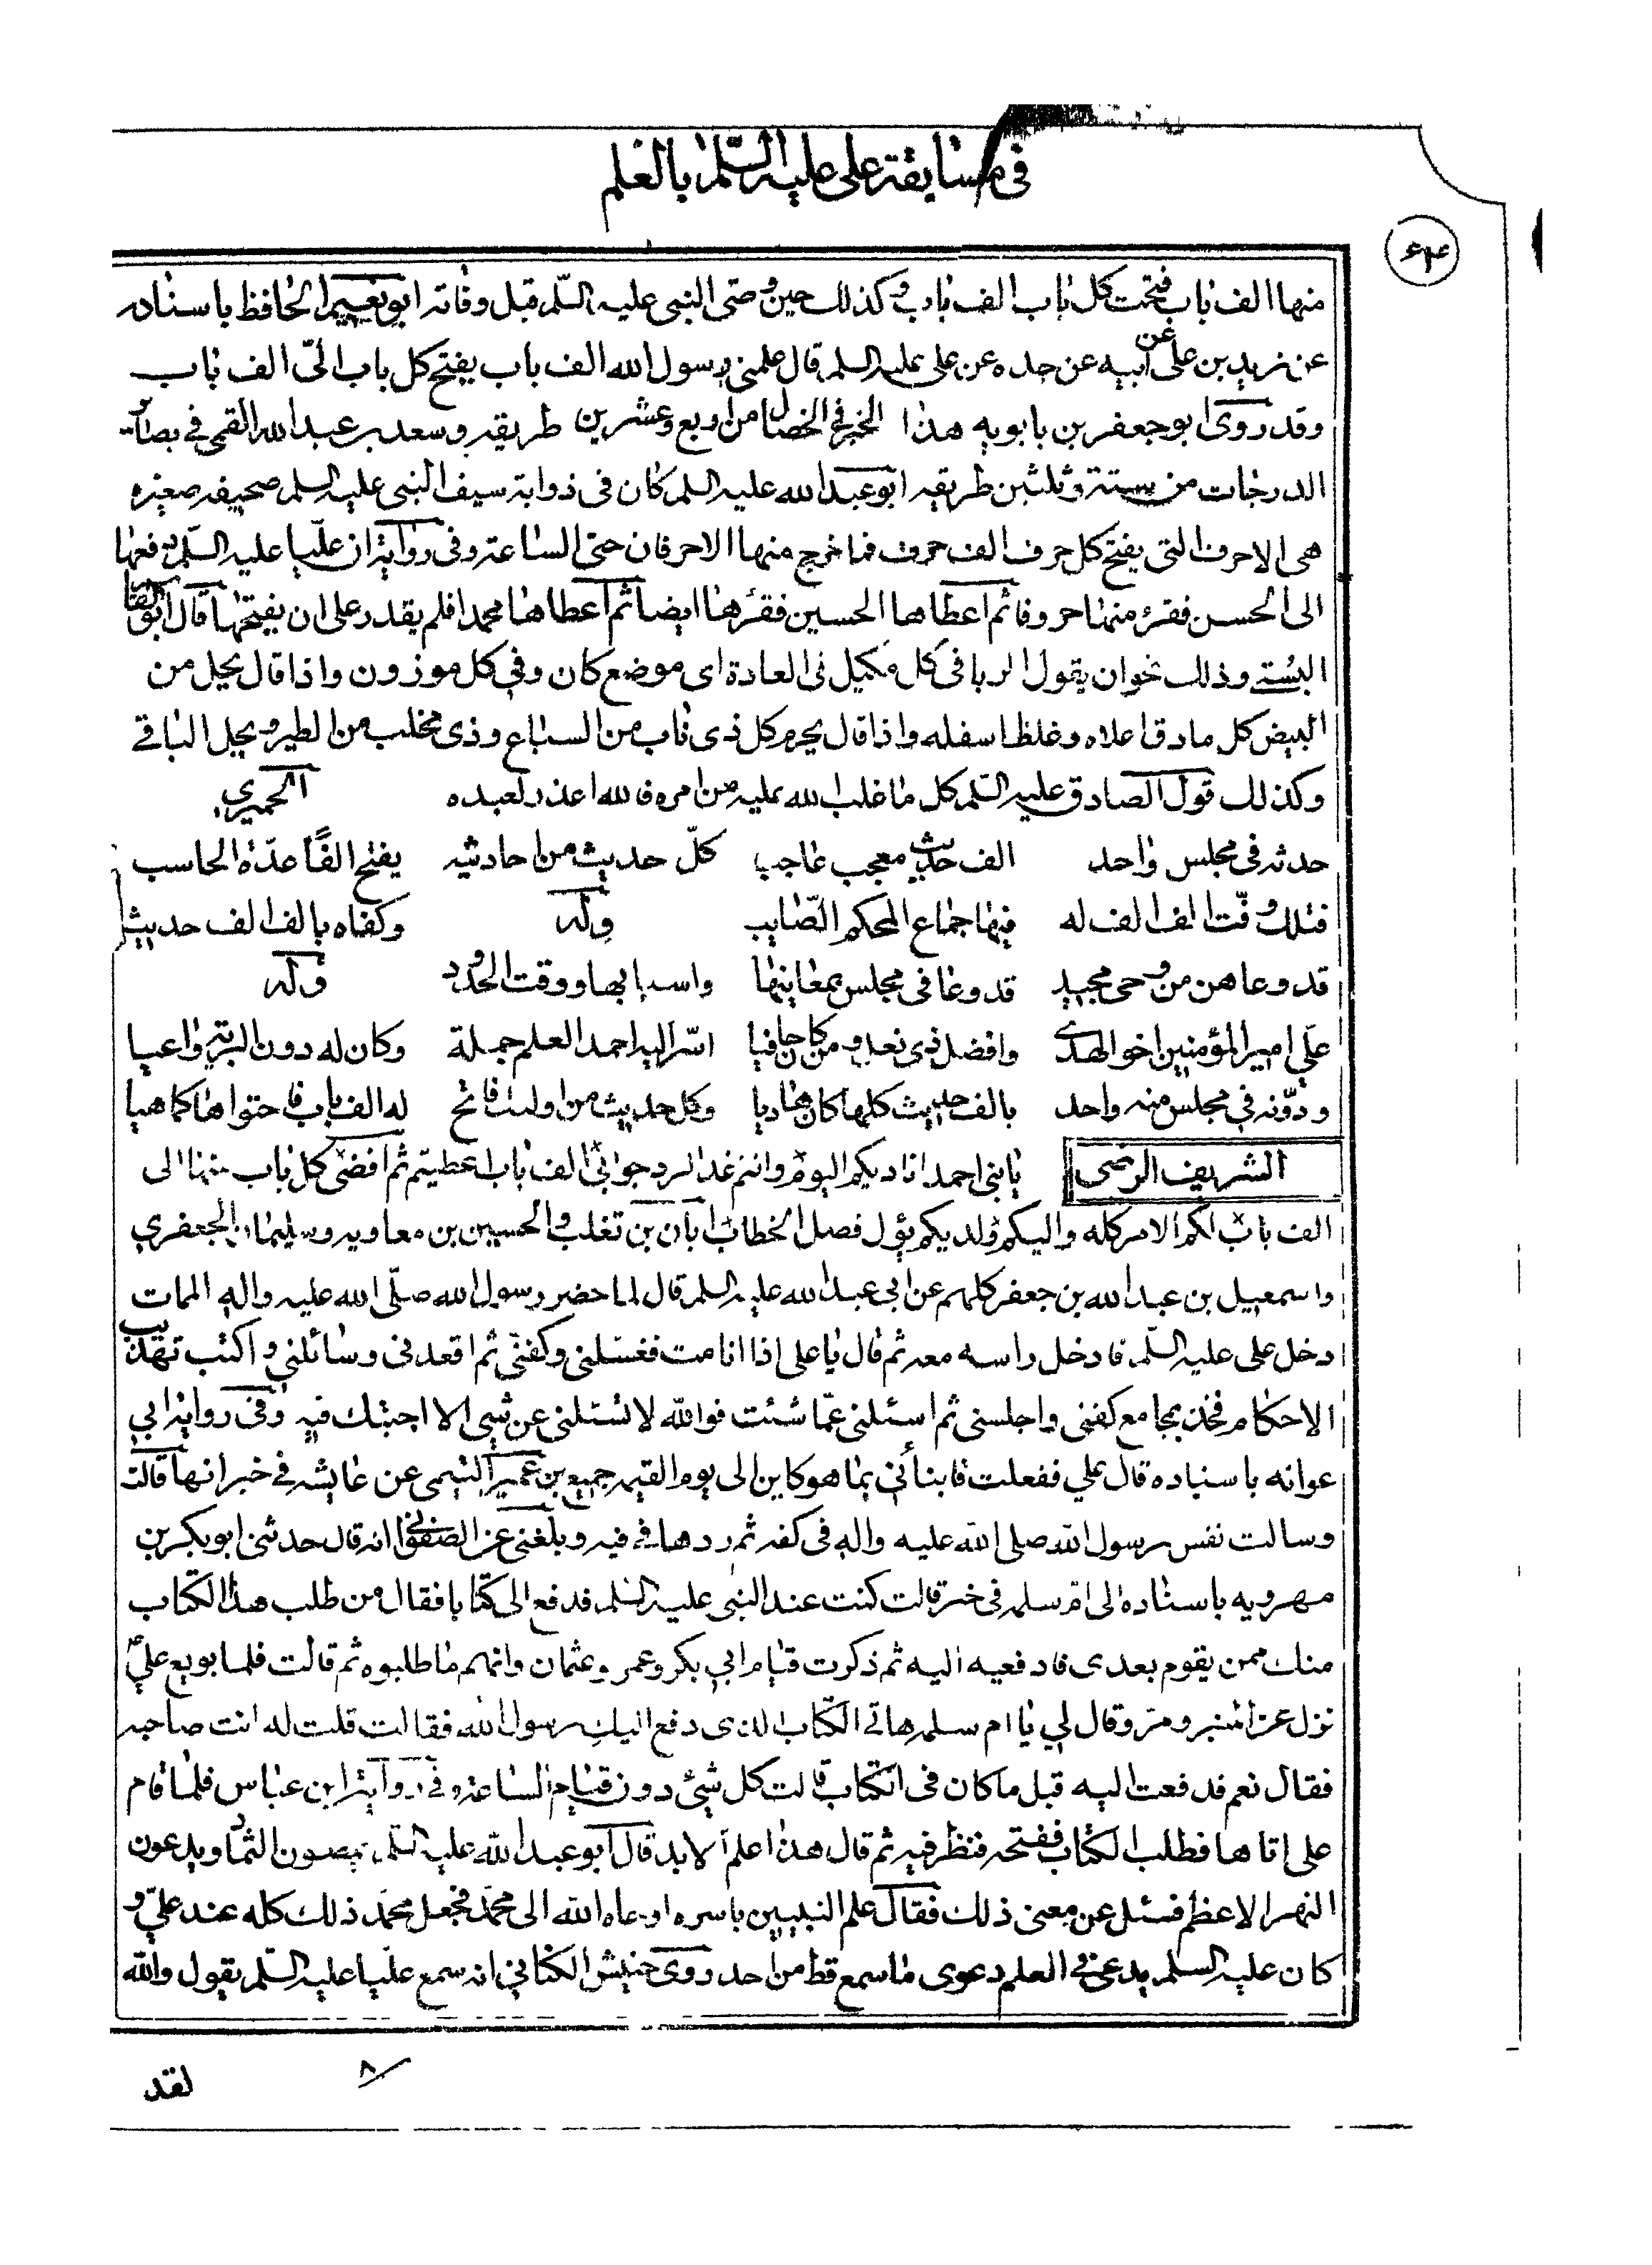 في مسابقة علي عليه السلم بالعلم
۶۴
منها الف باب فتحت كل باب الف باب وكذلك حين وصى النبي عليه السلم قبل وفاته ابو نعيم الحافظ باسناده
عن زيد بن على عن ابيه عن جده عن على عليه السلم قال علمنى رسول الله الف باب يفتح كل باب الىّ الف باب
وقد روى ابو جعفر بن بابويه هذا الخبر في الخصال من اربع وعشرين طريقه وسعد بن عبد الله القمى في بصائر
الدرجات من ستة وثلثين طريقه ابو عبد الله عليه السلم كان في ذوابة سيف النبي عليه السلم صحيفه صغيره
هى الاحرف التى يفتح كل حرف الف حرف فما خرج منها الا حرفان حتى الساعة وفى رواية ان عليا عليه السلم دفعها
الى الحسن فقرئ منها حروفا ثم اعطاها الحسين فقرئها ايضا ثم اعطاها محمدا فلم يقدر على ان يفتحها قال ابو القا
البستي وذلك نحو ان يقول الربا في كل مكيل فى العادة اى موضع كان وفي كل موزون واذا قال يحل من
البيض كل ما دق اعلاه وغلظ اسفله واذا قال يحرم كل ذى ناب من السباع وذى مخلب من الطير ويحل الباقي
وكذلك قول الصادق عليه السلم كل ما غلب الله عليه من امره فالله اعذر لعبده الحميرى
حدثه فى مجلس واحد الف حديث معجب عاجب كلّ حديث من احاديثه يفتح الفًا عدّة الحاسب
فتلك وفّت الف الف له فيها جماع المحكم الصّايب وله وكفاه بالف الف حديث
قد وعاهن من وحى مجيد قد وعا فى مجلس بمعانيها واسبابها ووقت الحدود وله
علي امير المؤمنين اخو الهدى وافضل ذى نعل ومن كان حافيا اسر اليه احمد العلم جملة وكان له دون البرية واعيا
ودوّنه في مجلس منه واحد بالف حديث كلها كان هاديا وكل حديث من اولئك فاتح له الف باب فاحتواها كما هيا
الشريف الرضى يا بنى احمد اناديكم اليوم وانتم غدا لرد جوابى الف باب اعطيتم ثم افضى كل باب منها الى
الف باب لكم الامر كله واليكم ولديكم يؤل فصل الخطاب ابان بن تغلب والحسين بن معاويه وسليمان الجعفري
واسمعيل بن عبد الله بن جعفر كلهم عن ابى عبد الله عليه السلم قال لما حضر رسول الله صلّى الله عليه واله الممات
دخل على عليه السلم فادخل راسه معه ثم قال يا على اذا انا مت فغسلنى وكفنى ثم اقعدنى وسائلنى واكتب تهذيب
الاحكام فخذ بمجامع كفنى واجلسنى ثم اسئلنى عمّا شئت فوالله لا تسئلنى عن شئ الا اجبتك فيه وفى رواية ابي
عوانه باسناده قال علي ففعلت فانبأنى بما هو كاين الى يوم القيمه جميع بن عمير التيمى عن عايشه في خبر انها قالت
وسالت نفس رسول الله صلى الله عليه واله فى كفه ثم ردها في فيه وبلغنى عن الصفوانى انه قال حدثنى ابو بكر بن
مهرويه باسناده الى ام سلمه فى خبر قالت كنت عند النبى عليه السلم فدفع الى كتابا فقال من طلب هذا الكتاب
منك ممن يقوم بعدى فادفعيه اليه ثم ذكرت قيام ابي بكر وعمر وعثمان وانهم ما طلبوه ثم قالت فلما بويع علي
نزل عن المنبر ومر وقال لي يا ام سلمه هاتى الكتاب الذى دفع اليك رسول الله فقالت قلت له انت صاحبه
فقال نعم فدفعت اليه قبل ما كان فى الكتاب قالت كل شئ دون قيام الساعة وفى رواية ابن عباس فلما قام
على اتاها فطلب الكتاب ففتحه فنظر فيه ثم قال هذا علم الابد قال ابو عبد الله عليه السلم يمصون الثماد ويدعون
النهر الاعظم فسئل عن معنى ذلك فقال علم النبيين باسره اوعاه الله الى محمّد فجعل محمّد ذلك كله عند عليّ و
كان عليه السلم يدعى في العلم دعوى ما سمع قط من احد روى حنيش الكناني انه سمع عليا عليه السلم يقول والله
لقد
٨